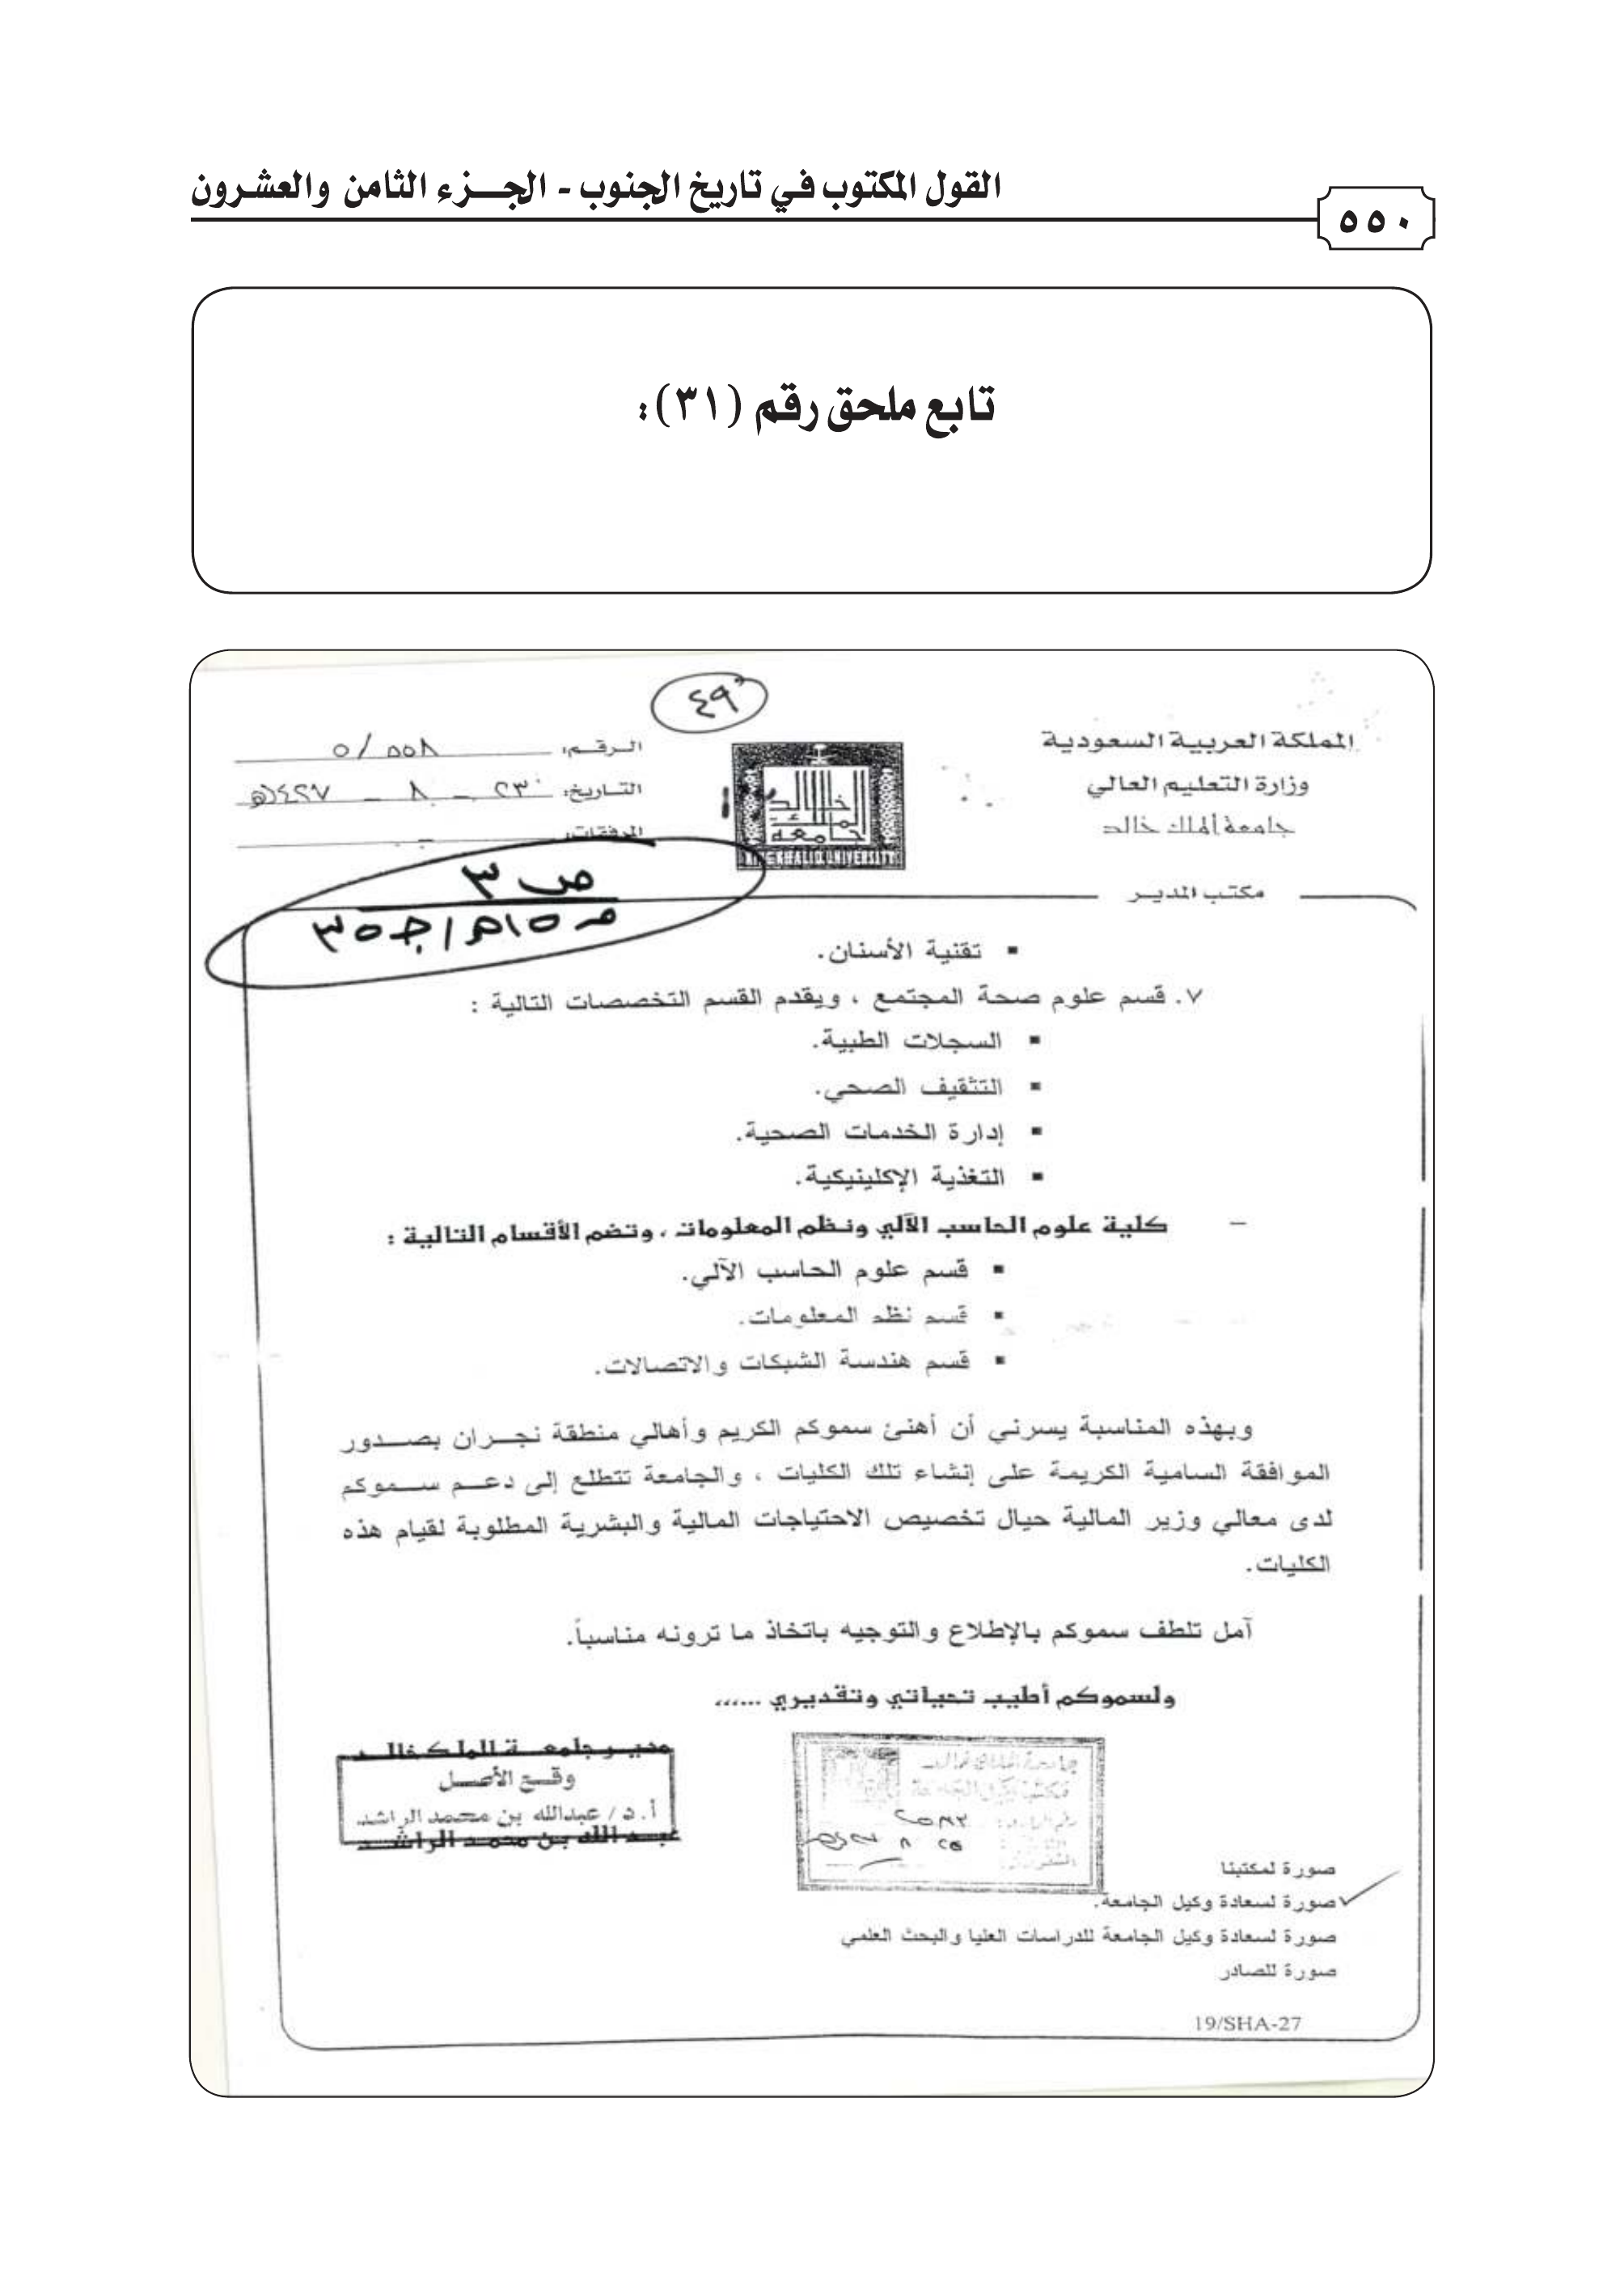 القول المكتوب في تاريخ الجنوب - الجـــزء الثامن والعشـرون
٥٥٠
تابع ملحق رقم (٣١):
٤٩
المملكة العربية السعودية
وزارة التعليم العالي
جامعة الملك خالد
الملك خالد
جامعة
KING KHALID UNIVERSITY
الـرقــم: ٥/٥٥٨
التـاريخ: ٢٣ - ٨ - ١٤٢٧هـ
المرفقات:
مكتب المديـر
ص ٣
▪ تقنية الأسنان.
٧. قسم علوم صحة المجتمع ، ويقدم القسم التخصصات التالية :
▪ السجلات الطبية.
▪ التثقيف الصحي.
▪ إدارة الخدمات الصحية.
▪ التغذية الإكلينيكية.
– كلية علوم الحاسب الآلي ونظم المعلومات ، وتضم الأقسام التالية :
▪ قسم علوم الحاسب الآلي.
▪ قسم نظم المعلومات.
▪ قسم هندسة الشبكات والاتصالات.
وبهذه المناسبة يسرني أن أهنئ سموكم الكريم وأهالي منطقة نجـــران بصـــدور
الموافقة السامية الكريمة على إنشاء تلك الكليات ، والجامعة تتطلع إلى دعـــم ســـموكم
لدى معالي وزير المالية حيال تخصيص الاحتياجات المالية والبشرية المطلوبة لقيام هذه
الكليات.
آمل تلطف سموكم بالإطلاع والتوجيه باتخاذ ما ترونه مناسباً.
ولسموكم أطيب تحياتي وتقديري ......
مديـر جامعـــة الملك خالـــد
وقــع الأصــل
أ. د / عبدالله بن محمد الراشد
عبـد الله بن محمـد الراشــد
جامعة الملك خالد
صورة لمكتبنا
صورة لسعادة وكيل الجامعة.
صورة لسعادة وكيل الجامعة للدراسات العليا والبحث العلمي
صورة للصادر
19/SHA-27